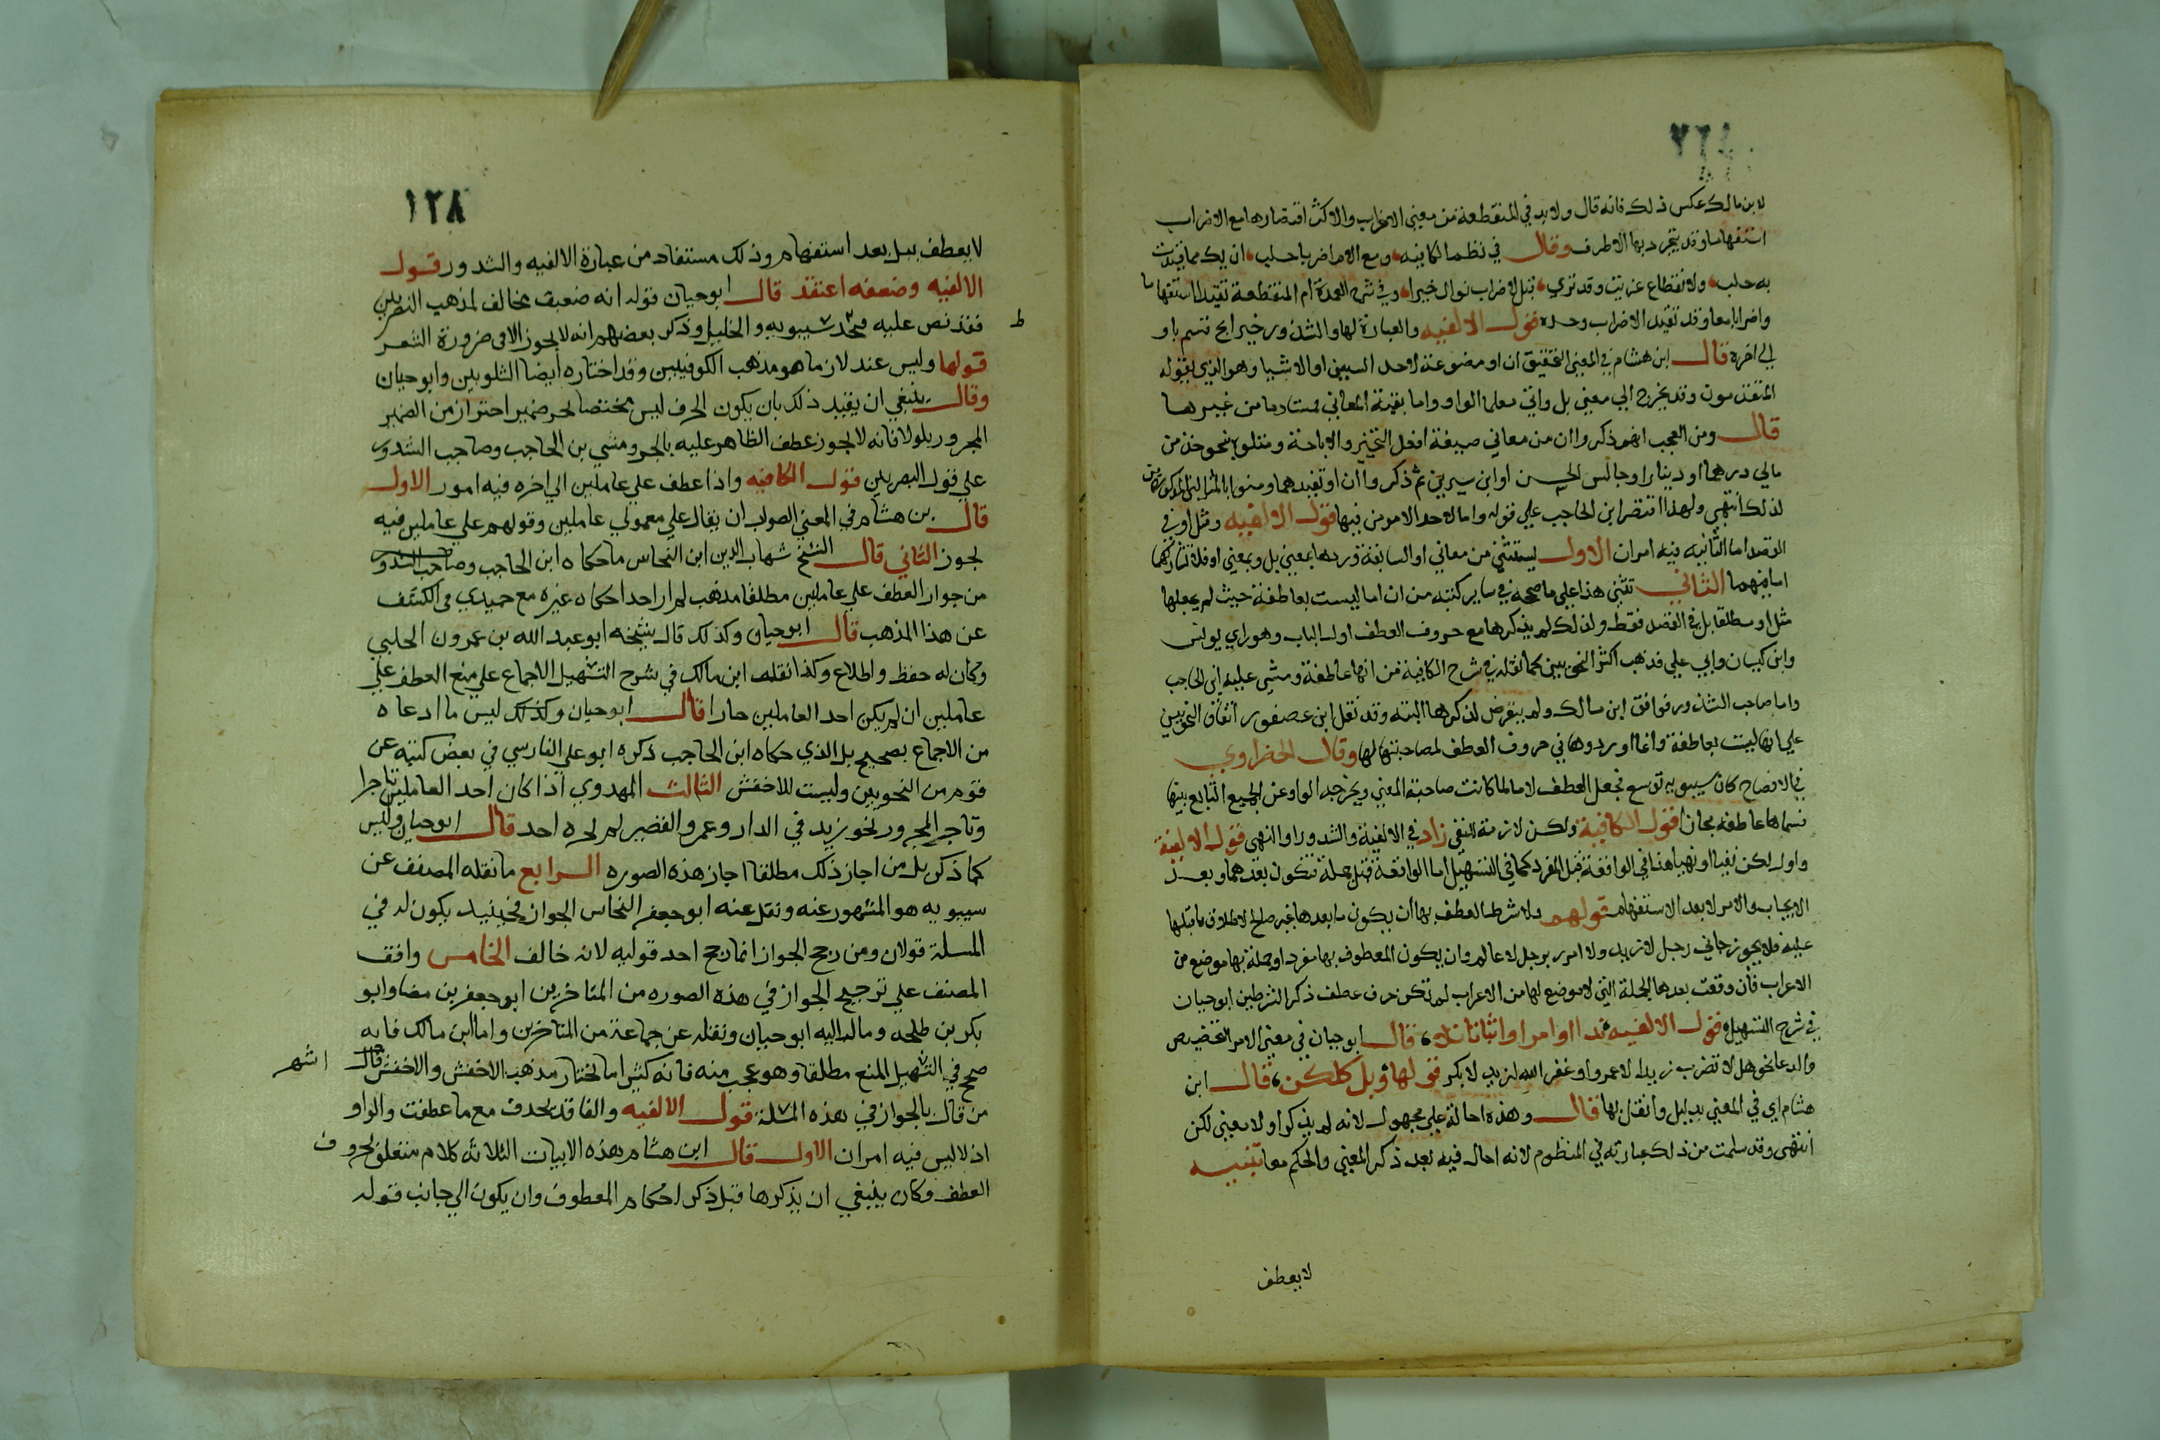 لابن مالك عكس ذلك فانه قال ولابد في المنقطعة من معنى الاضراب والاكثر اقتضارها مع الاضراب
استفهاما وقد يتجرد بها الاطرف وقال في نظم الكافيه ومع الاضراب باحلب ان يك مما قيدت
به حلب ولانقطاع عزيت وقد تري قبل لاضراب نوال خبرا وفي شرح العمدة ام المنقطعة تفيد استفهاما
واضرابا معا وقد تفيد الاضراب وحده قول الالفيه والعبارة لها والشذور خير ابح قسم باو
الي اخره قال ابن هشام في المغني التحقيق ان او موضوعة لاحد الشيين او الاشيا وهو الذي يقوله
المتقدمون وقد يخرج الي معنى بل والى معنى الواو واما بقية المعاني مستفادة من غيرها
قال ومن العجب انهم ذكروا ان من معاني صيغة افعل التخيير والاباحة ومثلوه بنحو خذ من
مالي درهما او دينارا وجالس الحسن او ابن سيرين ثم ذكروا ان او تفيدهما ومثلوا بالمثالين المذكورين
لذلك انتهي ولهذا اقتصر ابن الحاجب علي قوله واما لاحد الامرين فيها قول الالفيه ومثل او في
القصد اما الثانيه فيه امران الاول يستثني من معاني او السابقة ورودها بمعنى بل وبمعنى او فلا تشاركها
اما فيهما الثاني تبنى هذا علي ما صححه في ساير كتبه من ان اما ليست بعاطفة حيث لم يجعلها
مثل او مطلقا بل في القصد فقط ولذلك لم يذكرها مع حروف العطف اول الباب وهو راي يونس
وابن كيسان وابي علي فذهب اكثر النحويين كما نقله في شرح الكافية من انها عاطفة ومشي عليه ابن الحاجب
واما صاحب الشذور فوافق ابن مالك ولم يتعرض لذكرها البته وقد نقل ابن عصفور اتفاق النحويين
علي انها ليست بعاطفة وانما اوردوها في حروف العطف لمصاحبتها لها وقال الخضراوي
في الافصاح كان سيبويه توسع فجعل العطف لاما لما كانت صاحبة المعني ويخرجه الواو عن الجميع التابع بينها
فسماها عاطفه مجازا قول الكافية ولكن لازمة للنفي زاد في الالفية والشذور او النهي قول الالفية
واول لكن نفيا او نهيا هذا في الواقعة قبل المفرد كما في التسهيل اما الواقعة قبل جملة فتكون بعدهما وبعد
الايجاب والامر لا بعد الاستفهام قولهم ولا شرط العطف بها ان يكون ما بعدها غير صالح لاطلاق ما قبلها
عليه فلا يجوز جاني رجل لا زيد ولا امرر برجل لا عالم وان يكون المعطوف بها مفردا او جملة لها موضع من
الاعراب فان وقعت بعدها الجملة التي لا موضع لها من الاعراب لم تكن حرف عطف ذكر الشرطين ابوحيان
في شرح التسهيل قول الالفيه ندا او امرا او اثباتا تلا قال ابوحيان في معنى الامر التحضيض
والدعا نحو هلا تضرب زيدا لا عمرو او غفر الله لزيد لا بكر قولها وبل كلكن قال ابن
هشام اي في المعني بدليل وانقل بها قال وهذه احالة علي مجهول لانه لم يذكر اولا معنى لكن
انتهي وقد سلمت من ذلك عبارته في المنظوم لانه احال فيه بعد ذكر المعني والحكم معا تنبيه
لا يعطف
١٢٨
لا يعطف ببل بعد استفهام وذلك مستفاد من عبارة الالفيه والشدور قول
الالفيه وضعفه اعتقد قال ابوحيان قوله انه ضعيف مخالف لمذهب البصريين
فقد نص عليه محمد سيبويه والخليل وذكر بعضهم انه لا يجوز الا في ضرورة الشعر
ط
قولها وليس عندي لازما هو مذهب الكوفيين وقد اختاره ايضا الشلوبين وابوحيان
وقال ينبغي ان يقيد ذلك بان يكون الحرف ليس مختصا لجر ضمير احتراز من الضمير
المجرور بلولا فانه لا يجوز عطف الظاهر عليه بالجر ومشي بن الحاجب وصاحب الشدور
علي قول البصريين قول الكافيه واذا عطف علي عاملين الي اخره فيه امور الاول
قال بن هشام في المغني الصواب ان يقال علي معمولي عاملين وقولهم علي عاملين فيه
تجوز الثاني قال الشيخ شهاب الدين ابن النحاس ما حكاه ابن الحاجب وصاحب الشدور
من جواز العطف علي عاملين مطلقا مذهب لم ار احدا حكاه غيره مع حميدي في الكشف
عن هذا المذهب قال ابوحيان وكذلك قال شيخه ابوعبد الله بن عمرون الحلبي
وكان له حفظ واطلاع وكذا نقله ابن مالك في شرح التسهيل الاجماع علي منع العطف علي
عاملين ان لم يكن احد العاملين جارا قال ابوحيان وكذلك ليس ما ادعاه
من الاجماع بصحيح بل الذي حكاه ابن الحاجب ذكره ابوعلي الفارسي في بعض كتبه عن
قوم من النحويين وليست للاخفش الثالث المهدوي اذا كان احد العاملين جارا
وتاخر المجرور نحو زيد في الدار وعمرو القصر لم يجزه احد قال ابوحيان وليس
كما ذكر بل من اجاز ذلك مطلقا اجاز هذه الصوره الرابع ما نقله المصنف عن
سيبويه هو المشهور عنه ونقل عنه ابوجعفر النحاس الجواز فحينيد يكون له في
المسلة قولان ومن رجح الجواز انما رجح احد قوليه لانه خالف الخامس وافق
المصنف علي ترجيح الجواز في هذه الصوره من المتاخرين ابوجعفر بن مضا وابو
بكر بن طلحه ومال اليه ابوحيان ونقله عن جماعة من المتاخرين واما ابن مالك فانه
صحح في التسهيل المنع مطلقا وهو عجب منه فانه كثيرا ما يختار مذهب الاخفش والاخفش قال
اشهر
من قال بالجواز في هذه المسلة قول الالفيه والفا قد تحدف مع ما عطفت والواو
اذ لا لبس فيه امران الاول قال ابن هشام هذه الابيات الثلاثه كلام متعلق بحروف
العطف وكان ينبغي ان يذكرها قبل ذكر احكام المعطوف وان يكون الي جانب قوله